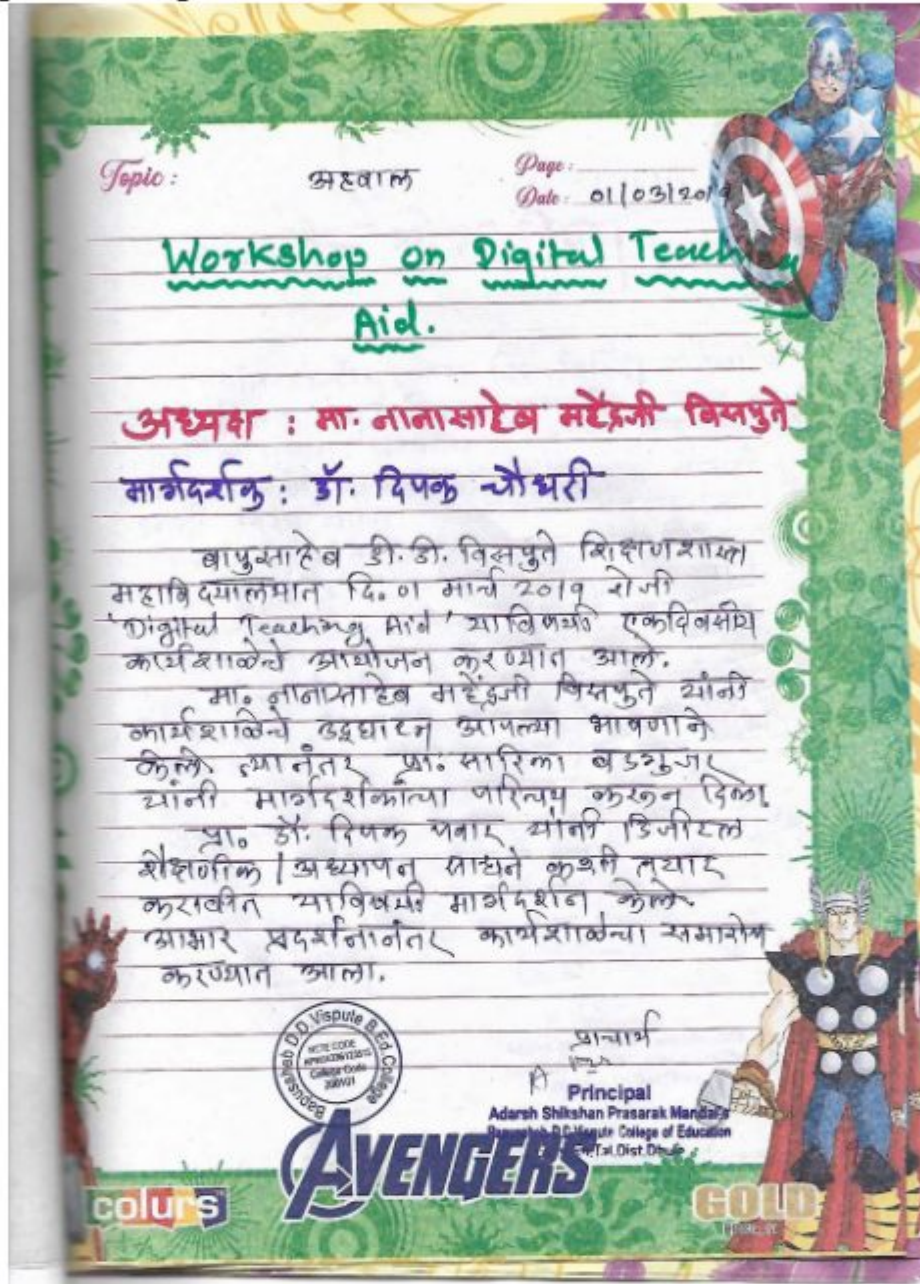 Topic : अहवाल
Page :
Date : 01/03/2019
Workshop on Digital Teaching
Aid.
अध्यक्ष : मा. नानासाहेब महेंद्रजी विसपुते
मार्गदर्शक : डॉ. दिपक चौधरी
बापुसाहेब डी. डी. विसपुते शिक्षणशास्त्र
महाविद्यालयात दि. 01 मार्च 2019 रोजी
'Digital Teaching Aid' याविषयी एकदिवसीय
कार्यशाळेचे आयोजन करण्यात आले.
मा. नानासाहेब महेंद्रजी विसपुते यांनी
कार्यशाळेचे उद्घाटन आपल्या भाषणाने
केले त्यानंतर प्रा. सारिका बडगुजर
यांनी मार्गदर्शकांचा परिचय करून दिला.
प्रा. डॉ. दिपक पवार यांनी डिजीटल
शैक्षणिक / अध्यापन साधने कशी तयार
करावीत याविषयी मार्गदर्शन केले.
आभार प्रदर्शनानंतर कार्यशाळेचा समारोप
करण्यात आला.
Bapusaheb D.D. Vispute B.Ed. College
NCTE CODE
College Code
प्राचार्य
Principal
Adarsh Shikshan Prasarak Mandal's
Bapusaheb D.D. Vispute College of Education
Tal. Dist. Dhule
AVENGERS
colurs
GOLD